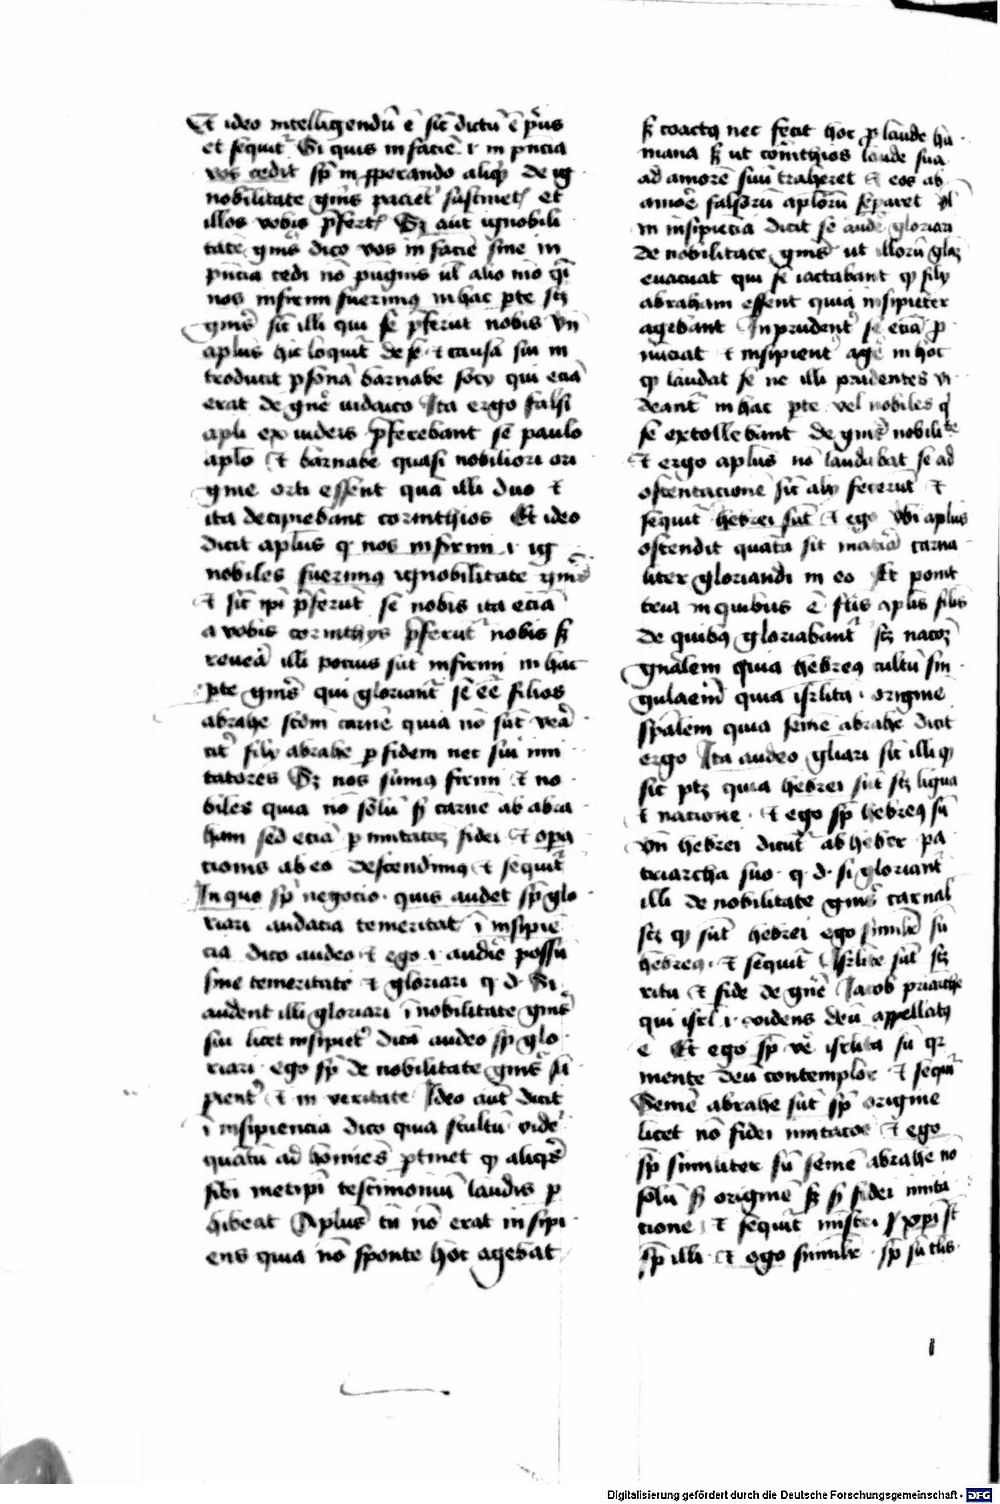 Et ideo intelligendū ē sic̄ dictū ē pͥus
et seqūit Si quis in faciē .i. in pn̄cia
vos cedit sꝑ impꝑando aliqͥ de ig
nobilitate gn̄is pacient̾ sustinet̾ et
illos vobis p̄fert̾ Sꝫ aūt ignobili
tate gn̄is dico vos in faciē siue in
pn̄cia cedi nō pugnis ul̄ alio mō qͥ
nos infirmi fuerimꝰ in hac pte scꝫ
gn̄is sic̄ illi qui se p̄ferūt nobis Vn̄
apl̄us hic loquit̄ de se ⁊ causa sui in
troducit ꝑsonā barnabe socij qui eciā
erat de gn̄e iudaico Ita ergo falsi
apl̄i ex iudeis p̄ferebant se paulo
aplō ⁊ barnabe quasi nobiliori ori
gine orti essent quā illi duo ⁊
ita decipiebant corinthios Et ideo
dicit apl̄us ꝙ nos infirmi .i. ig
nobiles fuerimꝰ ignobilitate gn̄is
⁊ sic̄ ip̄i p̄ferūt se nobis ita eciā
a vobis corinthijs p̄ferūt̄ nobis sꝫ
reuerā illi pocius sūt infirmi in hac
pte gn̄is qui gloriant̄ se eē filios
abrahe scd̄m carnē quia nō sūt verac̄
cit̾ filij abrahe ꝑ fidem nec sūi imi
tatores Sꝫ nos sumꝰ firmi ⁊ no
biles quia nō solū scd̄ carnē ab abra
ham sed eciā ꝑ imitatōꝫ fidei ⁊ opa
tionis ab eo descendimꝰ ⁊ sequit̄
In quo sꝑ negocio quis audet sꝑ glo
riari audacia temeritat̾ ī insipiē
cia dico audeo ⁊ ego .i. audē possū
sine temeritate ⁊ gloriari q d Si
audent illi gloriari ī nobilitate gn̄is
sui licet insipient̾ dicā audeo sꝑ glo
riari ego sꝑ de nobilitate gn̄is sa
pient̾ ⁊ in veritate Ideo aūt dicit
ī insipiencia dico quia stultū vide̾
quātū ad homīes ꝑtinet ꝙ aliqͥs
sibi metip̄i testimoniū laudis ꝑ
hibeat Apl̄us tn̄ nō erat insipi
ens quia nō sponte hoc agebat
sꝫ coactꝰ nec fecit hoc ꝓ laude hu
mana sꝫ ut corinthios laude sua
ad amorē suū traheret ⁊ eos ab
amore falsorū aplorū separet
in insipiēcia dicit se audē gloriari
de nobilitate gn̄is ut illorū gl̄aꝫ
euacuat qui se iactabant ꝙ filij
abraham essent quia insipieter
agebant Inprudent̾ se eciā ꝓ
nūciat ⁊ insipient̾ agē in hoc
ꝙ laudat se ne illi prudentes vi
deant̄ in hac pte vel nobiles qͥ
se extollebant de gn̄is nobilite
⁊ ergo apl̄us nō laudabat se ad
ostentacionē sic̄ alij fecerūt ⁊
sequit̄ hebrei sūt ⁊ ego Vbi aplus
ostendit quāta sit mat̄ia carna
liter gloriandi in eo Et ponit
tria in quibus ē ftis aplis filis
de quibꝰ gloriabant̄ scꝫ nacōꝫ
gn̄alem quia hebreꝰ cultū sin
gulaem̄ quia isrl̄ita origine
spālem quia semē abrahe dicit
ergo Ita audeo gl̄iari sic̄ illi ꝙ
sic ptꝫ quia hebrei sūt scꝫ ligua
⁊ nacione ⁊ ego sꝑ hebreꝰ sū
Vn̄ hebrei dicūt̄ ab heber pa
triarcha suo q d si gloriant̄
illi de nobilitate gn̄is carnal̄
scꝫ ꝙ sūt hebrei ego simil̄r sū
hebreꝰ ⁊ sequit̄ Isrl̄ite sūt scꝫ
ritu ⁊ fide de gn̄e Iacob pͥarche
qui isrl̄ .i. videns deū appellatꝰ
ē Et ego sꝑ vē isrl̄ita sū qꝛ
mente deū contemplor ⁊ sequit̄
Semē abrahe sūt sꝑ origine
licet nō fidei imitacōe ⁊ ego
sꝑ similiter sū semē abrahe nō
solū scd̄ originē sꝫ scd̄ fidei imita
cione ⁊ sequit̄ mistri xp̄i st
sꝑ illi ⁊ ego similr sꝑ sū
Digitalisierung gefördert durch die Deutsche Forschungsgemeinschaft - DFG